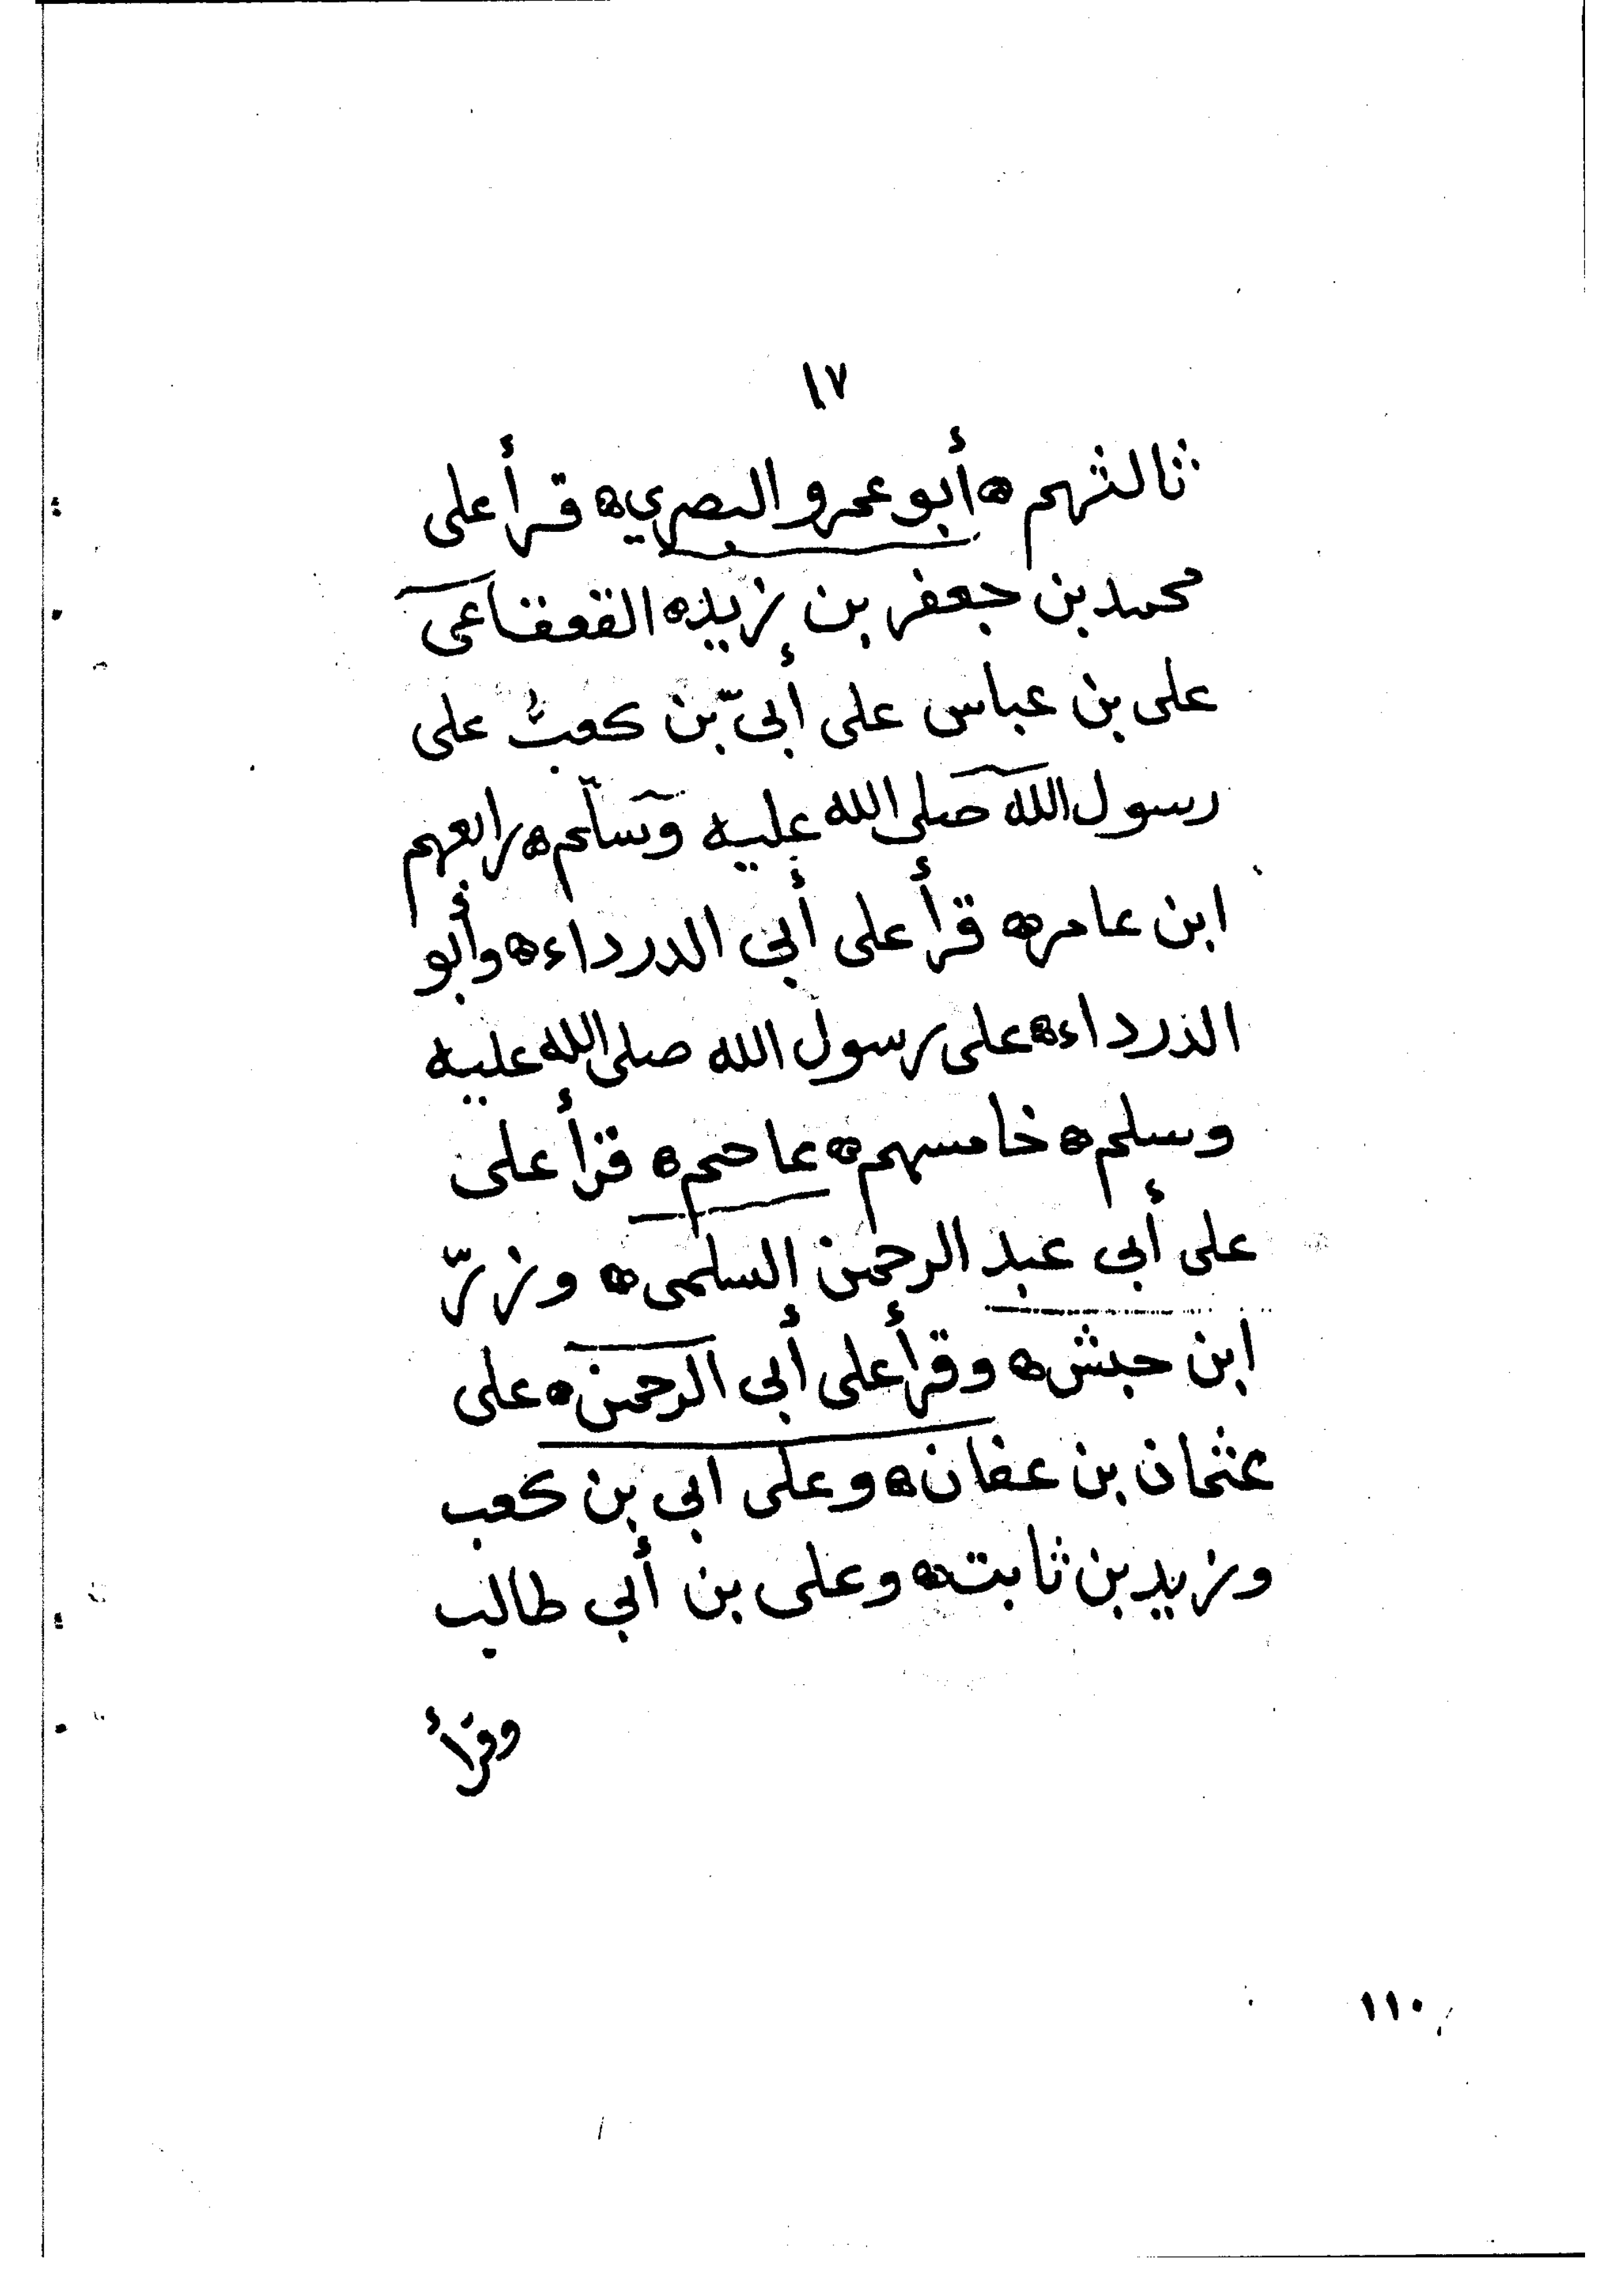 ١٧
ثالثهم ه أبو عمرو البصري ه قرأ على
محمد بن جعفر بن زيد ه القعقاعى
على بن عباس على أبىّ بن كعب على
رسول الله صلى الله عليه وسلم ه رابعهم
ابن عامر ه قرأ على أبى الدرداء ه وأبو
الدرداء ه على رسول الله صلى الله عليه
وسلم ه خامسهم ه عاصم ه قرأ على
على أبى عبد الرحمن السلمى ه وزرّ
ابن حبش ه وقرأ على أبى الرحمن ه على
عثمان بن عفان ه وعلى ابى بن كعب
وزيد بن ثابت ه وعلى بن أبى طالب
وقرأ
١١٠